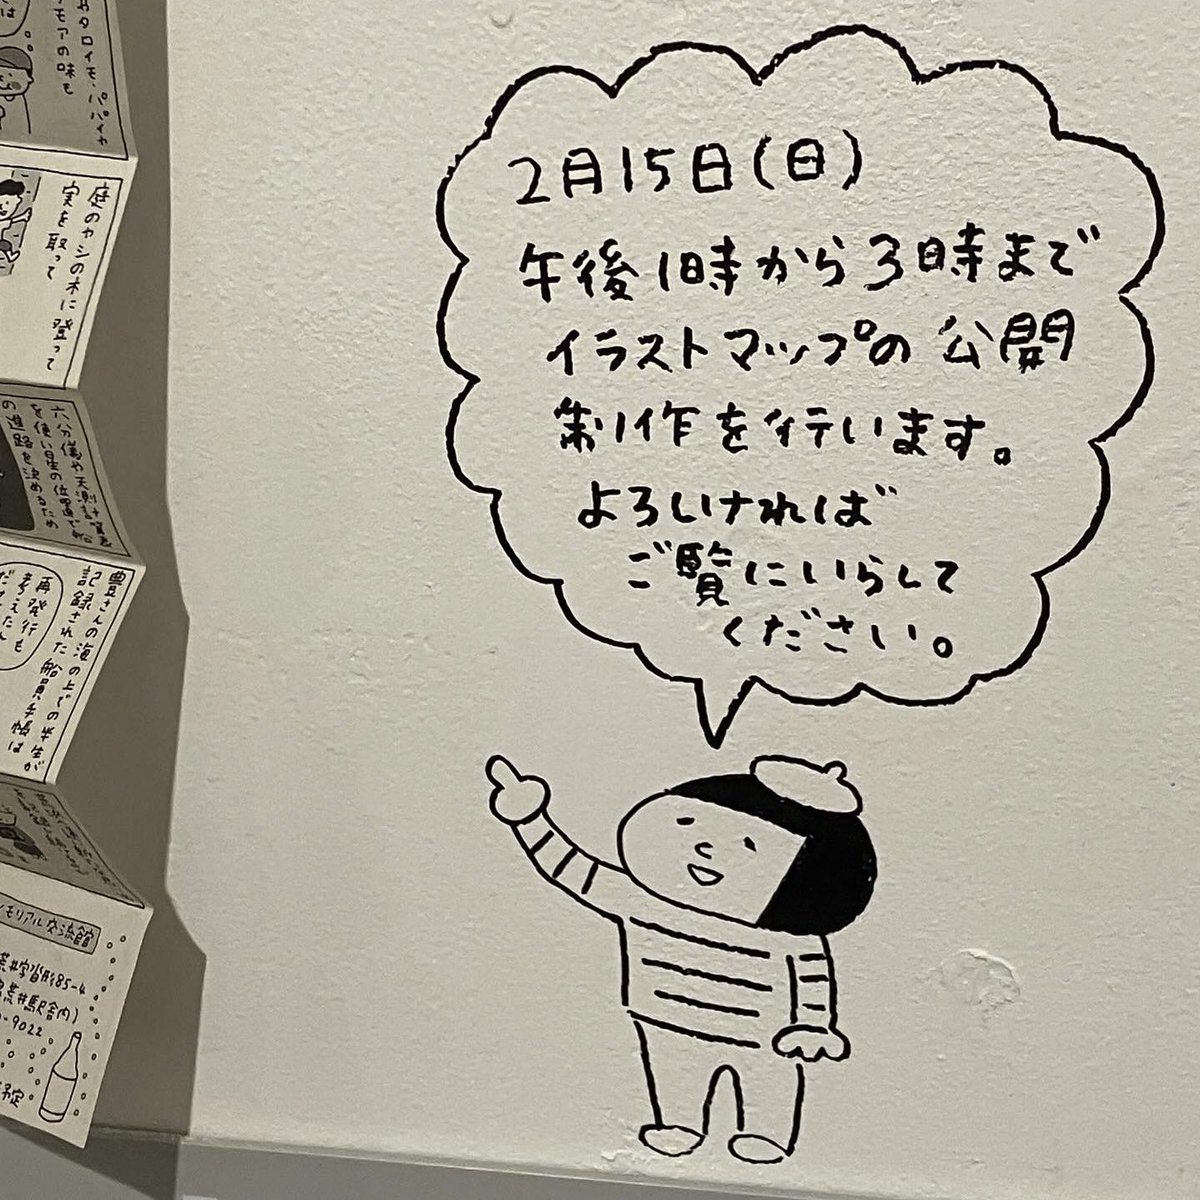 2月15日(日)
午後1時から3時まで
イラストマップの公開
制作を行います。
よろしければ
ご覧にいらして
ください。
やタロイモ、パパイヤ
モアの味も
庭のヤシの木に登って
実を取って
六分儀や天測計算表
を使い星の位置で船
の進路を決めるため
豊さんの海の上での半生が
記録された船員手帳は
再発行も
考えたん
モリアル交流館
荒井字沓形85-4
荒井駅舎内)
-9022
予定